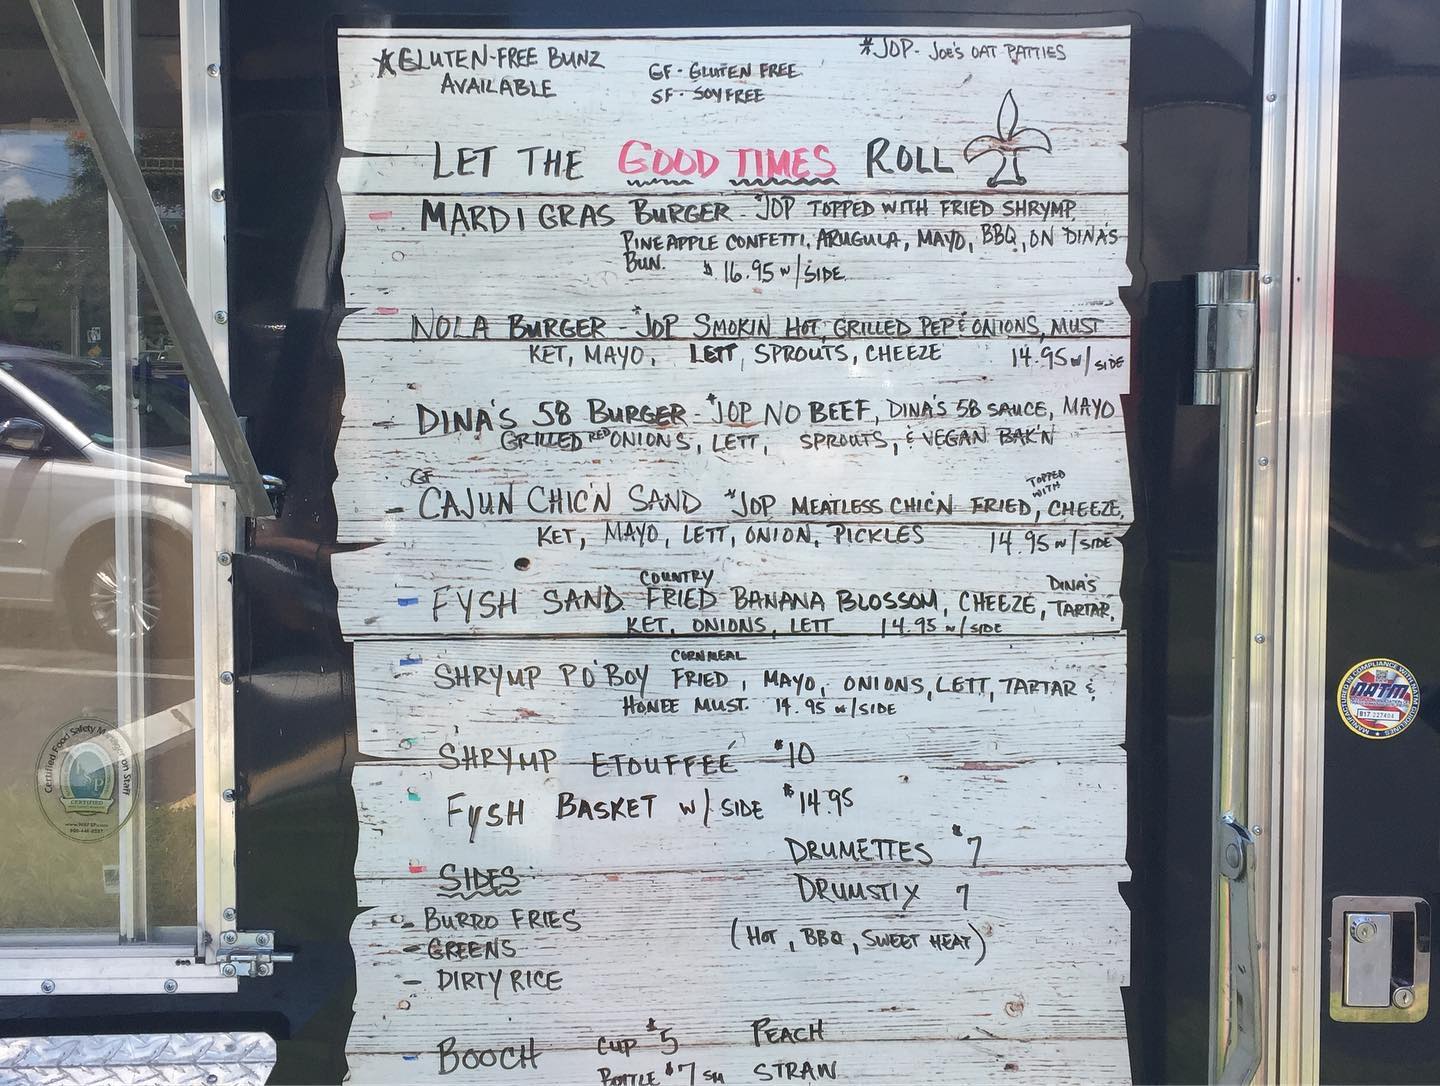 *GLUTEN-FREE BUNZ
AVAILABLE
GF - GLUTEN FREE
SF - SOY FREE
*JOP - JOE'S OAT PATTIES
LET THE GOOD TIMES ROLL
MARDI GRAS BURGER - *JOP TOPPED WITH FRIED SHRYMP,
PINEAPPLE CONFETTI, ARUGULA, MAYO, BBQ, ON DINA'S
BUN. $16.95 w/SIDE
NOLA BURGER - *JOP SMOKIN HOT, GRILLED PEP & ONIONS, MUST
KET, MAYO, LETT, SPROUTS, CHEEZE 14.95 w/SIDE
- DINA'S 58 BURGER - *JOP NO BEEF, DINA'S 58 SAUCE, MAYO
GRILLED RED ONIONS, LETT, SPROUTS, & VEGAN BAK'N
GF
- CAJUN CHIC'N SAND *JOP MEATLESS CHIC'N FRIED, TOPPED WITH CHEEZE,
KET, MAYO, LETT, ONION, PICKLES 14.95 w/SIDE
- FYSH SAND COUNTRY FRIED BANANA BLOSSOM, CHEEZE, DINA'S TARTAR,
KET, ONIONS, LETT 14.95 w/SIDE
SHRYMP PO'BOY CORNMEAL FRIED, MAYO, ONIONS, LETT, TARTAR &
HONEE MUST. 14.95 w/SIDE
SHRYMP ETOUFFEÉ $10
FYSH BASKET W/ SIDE $14.95
DRUMETTES $7
DRUMSTIX 7
(HOT, BBQ, SWEET HEAT)
SIDES
- BURRO FRIES
- GREENS
- DIRTY RICE
BOOCH CUP $5 PEACH
BOTTLE $7 STRAW
Certified Food Safety M on Staff
CERTIFIED
MANUFACTURED IN COMPLIANCE WITH NATM GUIDELINES
NATM
817 227404